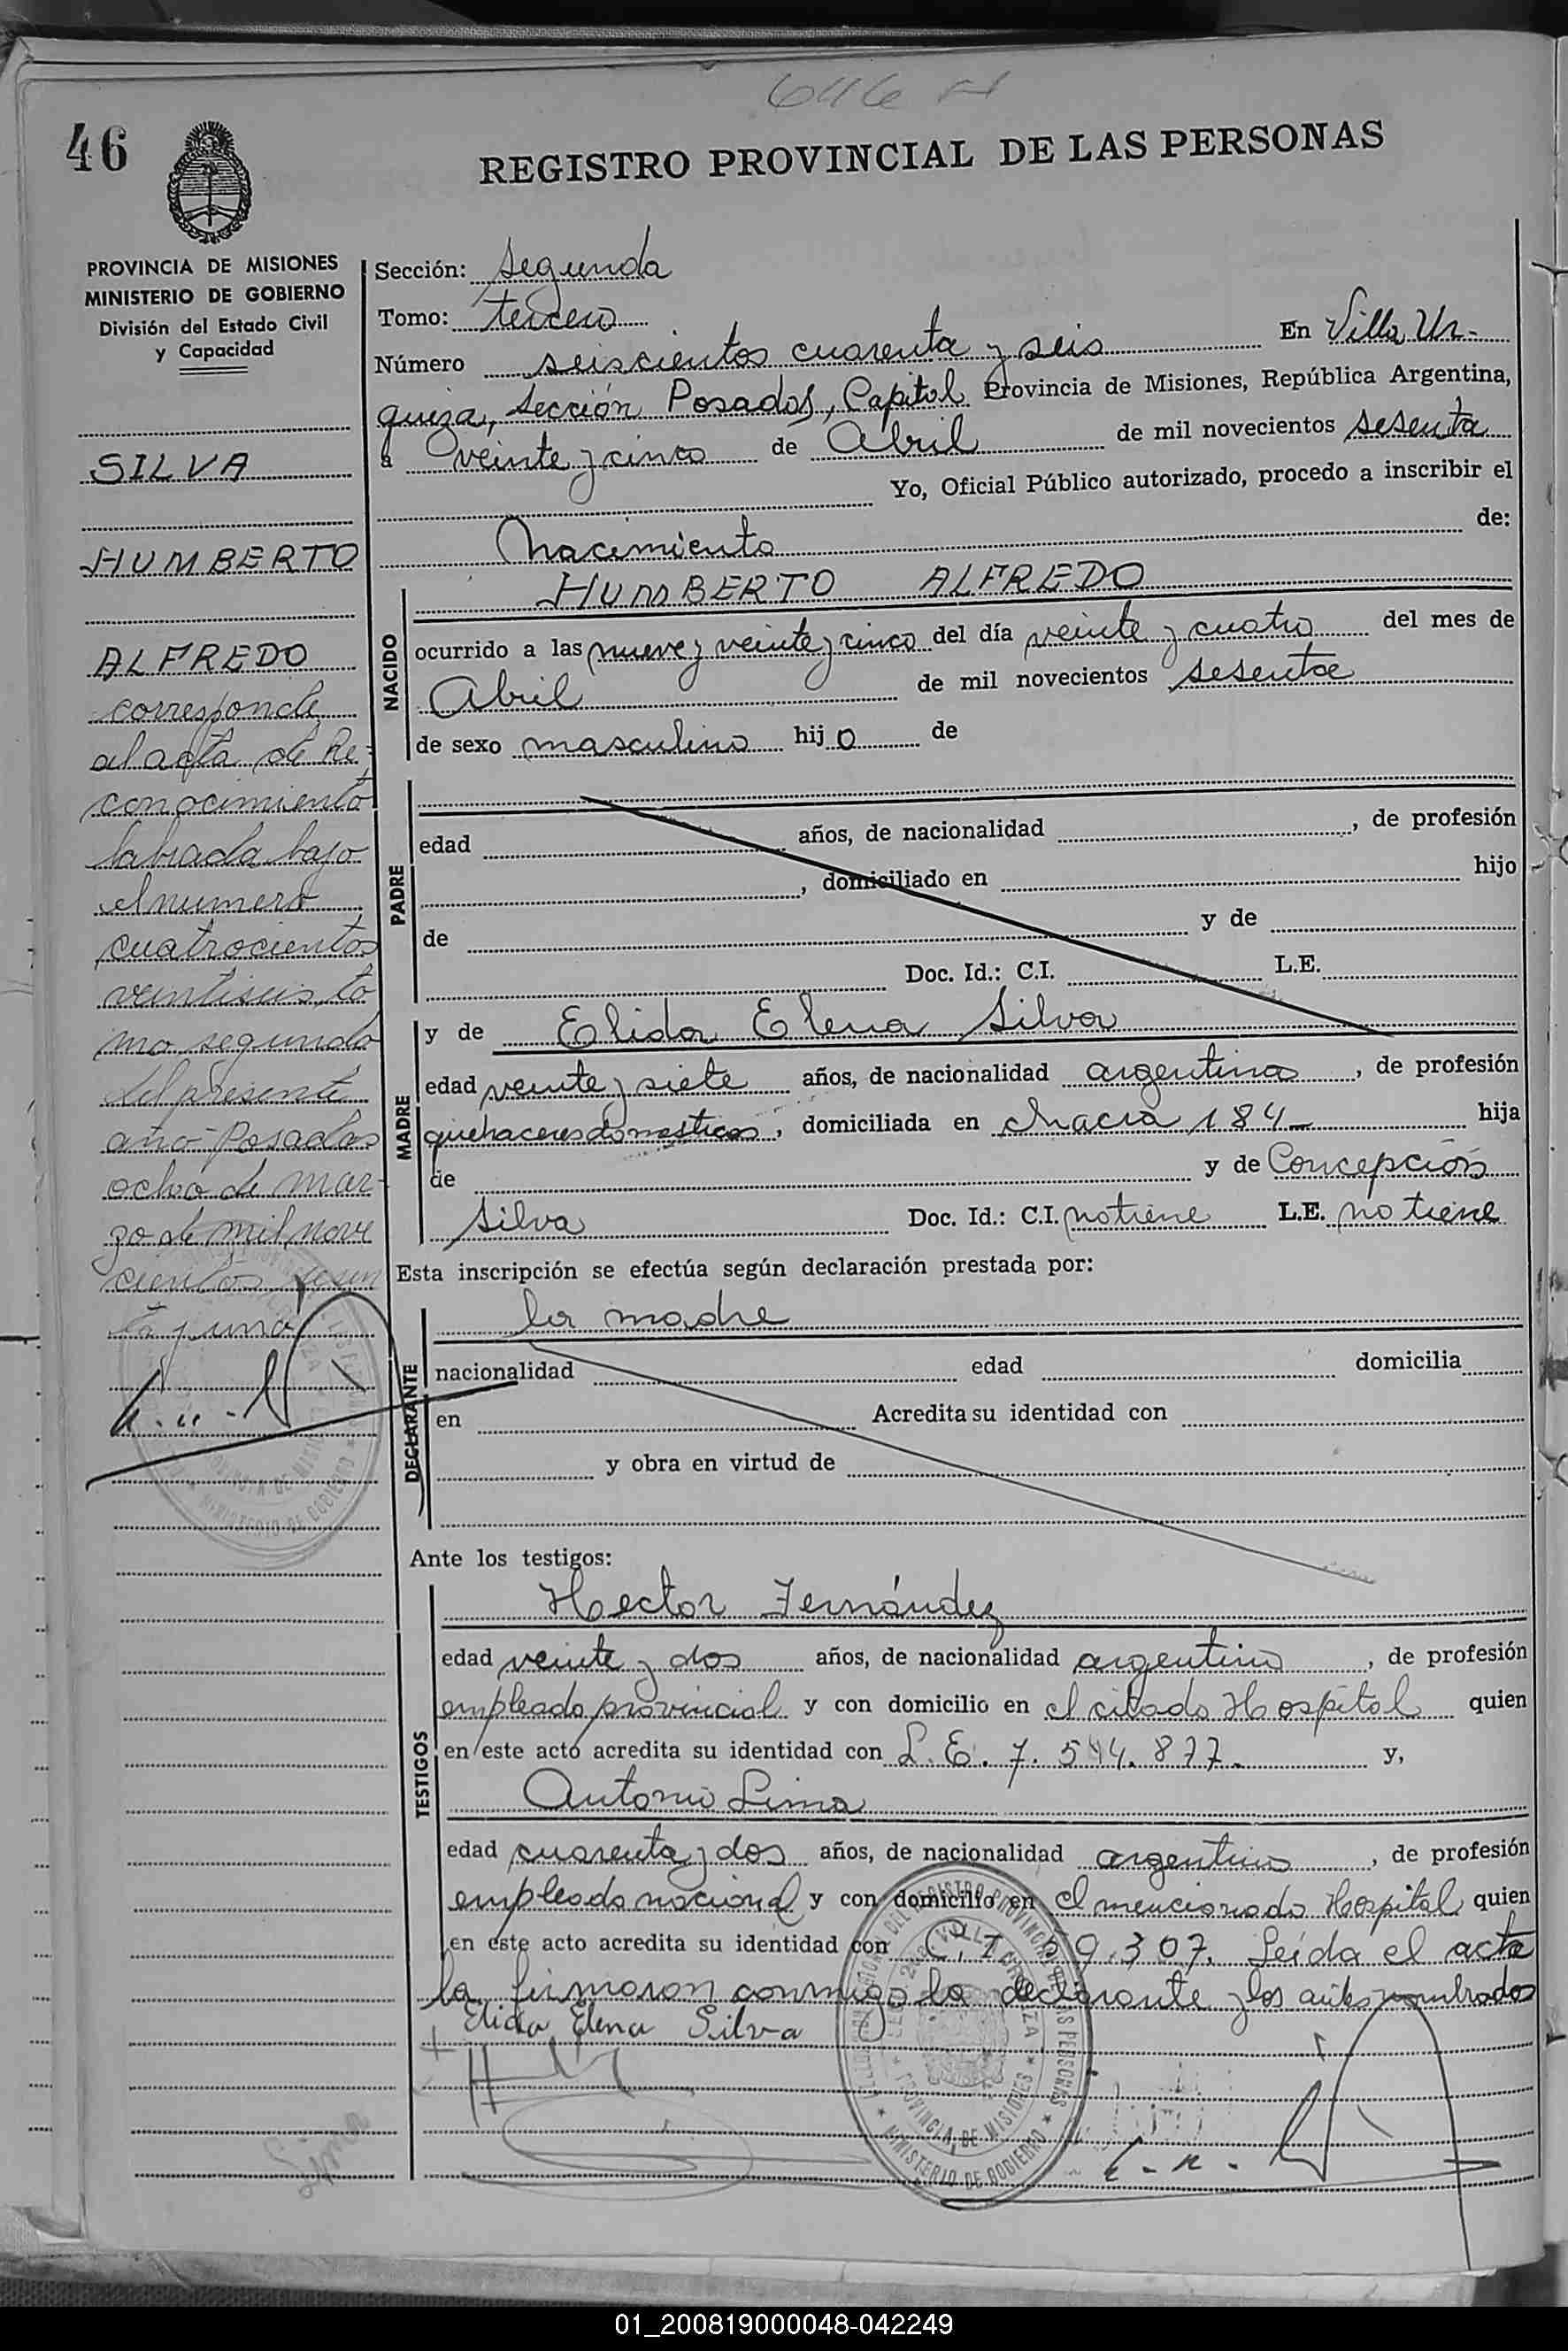 646 H
46
REGISTRO PROVINCIAL DE LAS PERSONAS
PROVINCIA DE MISIONES
MINISTERIO DE GOBIERNO
División del Estado Civil
y Capacidad
SILVA
HUMBERTO
ALFREDO
corresponde
al acta de Re-
conocimiento
labrada bajo
el numero
cuatrocientos
veintiseis, to
mo segundo
del presente
año- Posadas
ocho de mar-
zo de mil nove
cientos sesen
ta y uno
Sección: Segunda
Tomo: tercero
Número seiscientos cuarenta y seis En Villa Ur-
quiza, Sección Posadas, Capital Provincia de Misiones, República Argentina,
a veinte y cinco de Abril de mil novecientos sesenta
Yo, Oficial Público autorizado, procedo a inscribir el
Nacimiento de:
HUMBERTO ALFREDO
NACIDO
ocurrido a las nueve y veinte y cinco del día veinte y cuatro del mes de
Abril de mil novecientos sesenta
de sexo masculino hijo de
PADRE
edad años, de nacionalidad , de profesión
, domiciliado en hijo
de y de
Doc. Id.: C.I. L.E.
MADRE
y de Elida Elena Silva
edad veinte y siete años, de nacionalidad argentina, de profesión
quehaceres domesticos, domiciliada en chacra 184- hija
de y de Concepción
Silva Doc. Id.: C.I. no tiene L.E. no tiene
Esta inscripción se efectúa según declaración prestada por:
DECLARANTE
la madre
nacionalidad edad domicilia
en Acredita su identidad con
y obra en virtud de
Ante los testigos:
TESTIGOS
Hector Fernández
edad veinte y dos años, de nacionalidad argentino, de profesión
empleado provincial y con domicilio en el citado Hospital quien
en este acto acredita su identidad con L.E. 7.544.877- y,
Antonio Lima
edad cuarenta y dos años, de nacionalidad argentino, de profesión
empleado nacional y con domicilio en el mencionado Hospital quien
en este acto acredita su identidad con C.I. 69.307. Leída el acta
la firmaron conmigo la declarante y los antes nombrados
Elida Elena Silva
Lima
PROVINCIA DE MISIONES
MINISTERIO DE GOBIERNO
01_200819000048-042249